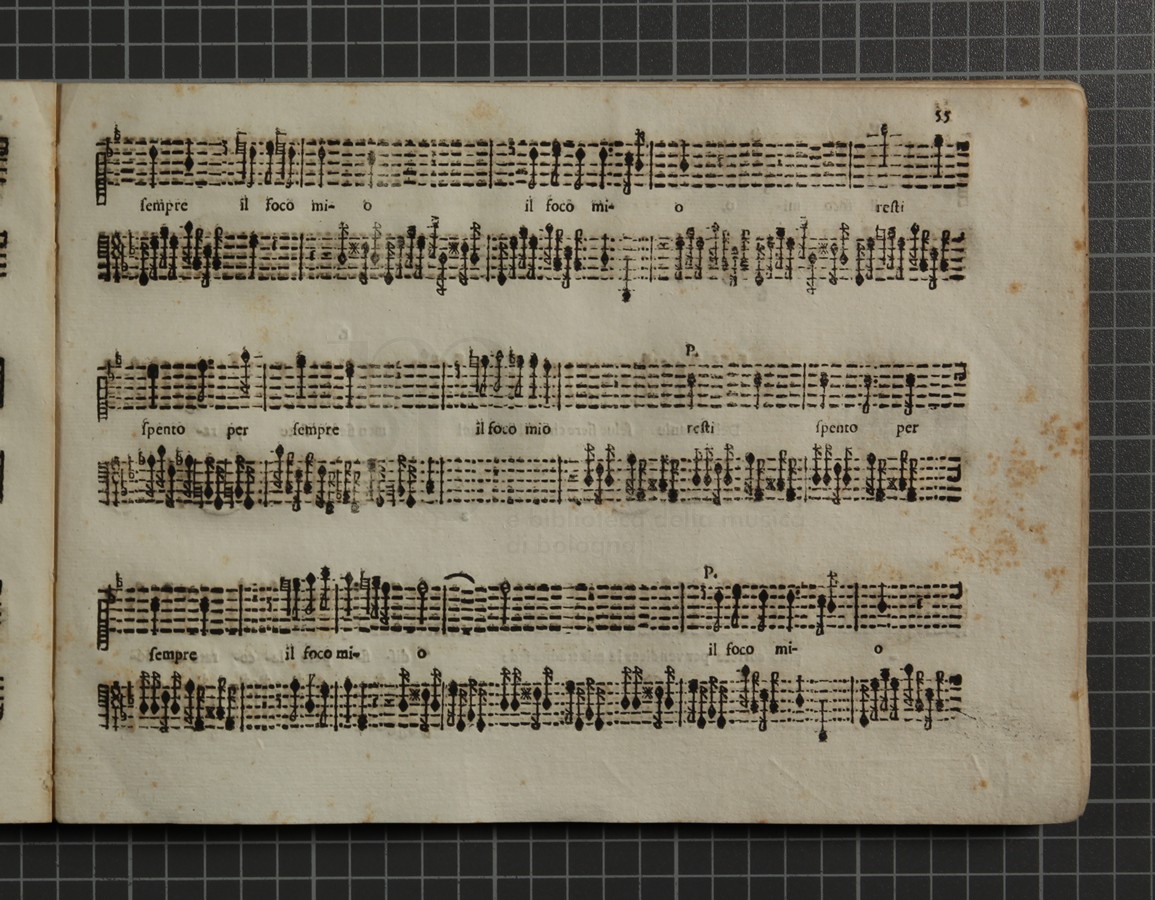 55
sempre il foco mi- o il foco mi- o resti
P.
spento per sempre il foco mio resti spento per
P.
sempre il foco mi- o il foco mi- o
e biblioteca della musica
di bologna